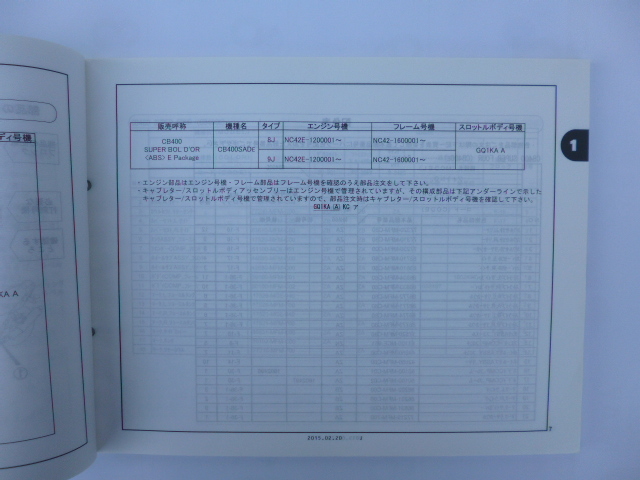 ディ号機
KA A
販売呼称 機種名 タイプ エンジン号機 フレーム号機 スロットルボディ号機
CB400
SUPER BOL D'OR
〈ABS〉 E Package
CB400SADE
5J NC42E-1200001～ NC42-1600001～
9J NC42E-1200001～ NC42-1600001～
GQ1KA A
・エンジン部品はエンジン号機・フレーム部品はフレーム号機を確認のうえ部品注文をして下さい。
・キャブレター/スロットルボディアッセンブリーはエンジン号機で管理されていますが、その構成部品は下記アンダーラインで示した
キャブレター/スロットルボディ号機で管理されていますので、部品注文時はキャブレター/スロットルボディ号機を確認して下さい。
GQ1KA (A) KC ア
1